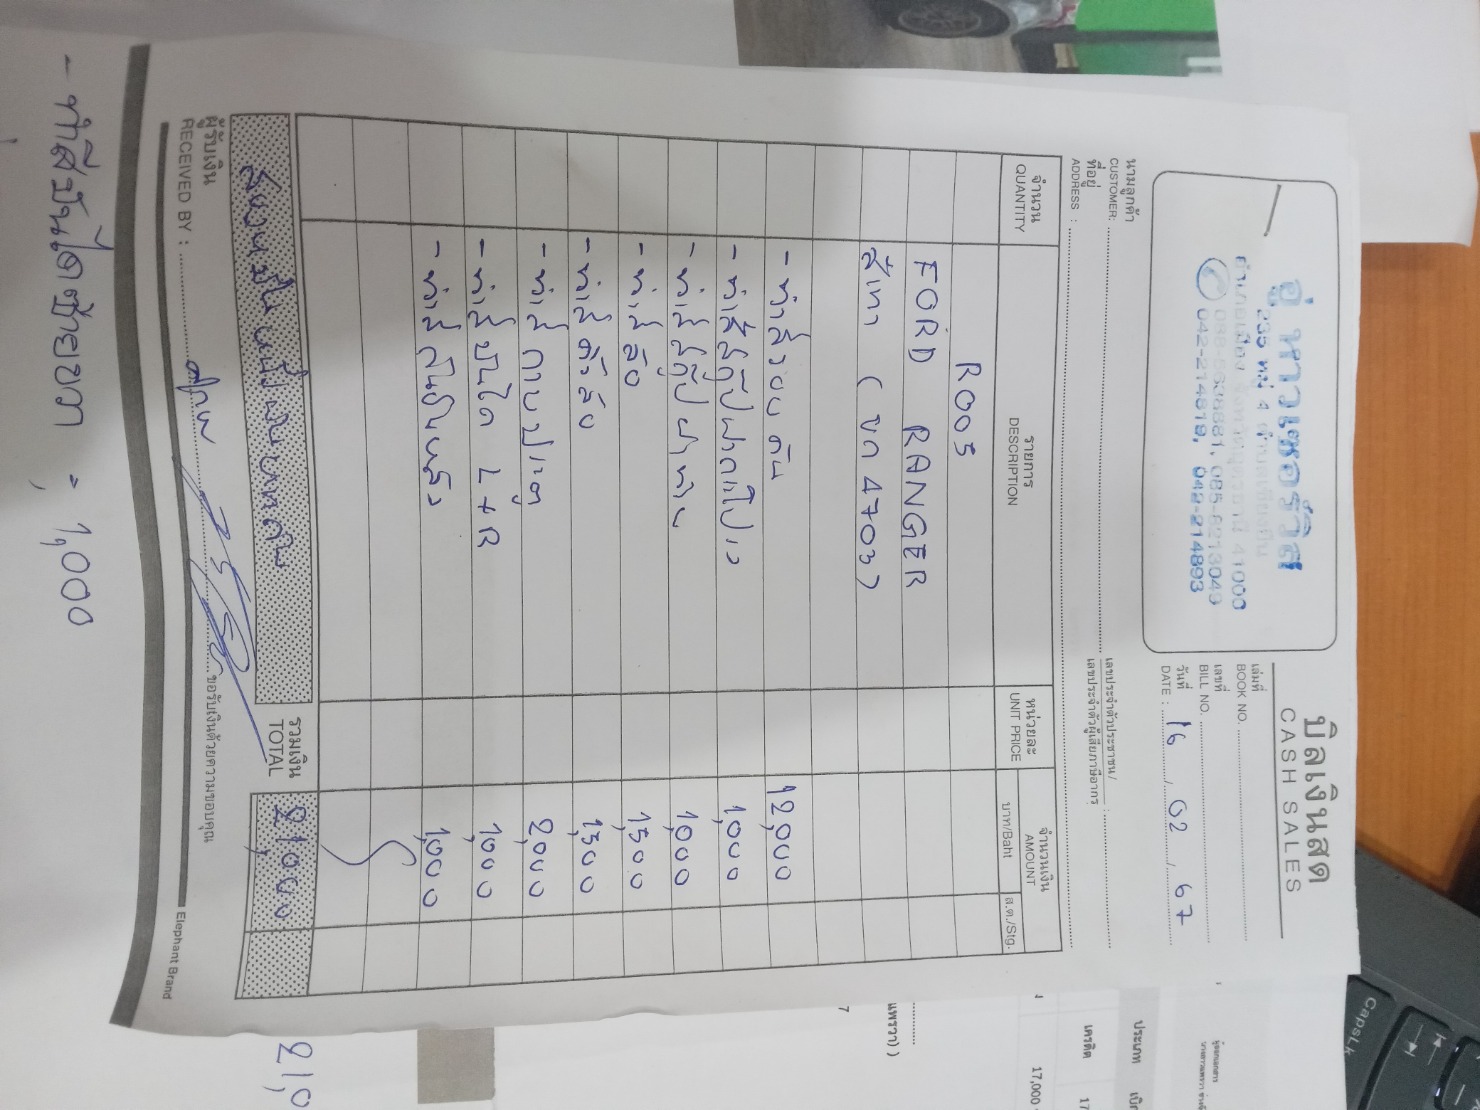 บิลเงินสด
CASH SALES
อู่ หาวเซอร์วิส
235 หมู่ 4 ตำบลเชียงยืน
อำเภอเมือง จังหวัดอุดรธานี 41000
042-214819, 042-214893
เล่มที่
BOOK NO.
เลขที่
BILL NO.
วันที่
DATE : 16 / 02 / 67
นามลูกค้า
CUSTOMER:
เลขประจำตัวประชาชน/
เลขประจำตัวผู้เสียภาษีอากร
ที่อยู่
ADDRESS :
จำนวน
QUANTITY
รายการ
DESCRIPTION
หน่วยละ
UNIT PRICE
จำนวนเงิน
AMOUNT
บาท/Baht
ส.ต./Stg.
R005
FORD RANGER
สีเทา ( ขก 4703 )
- ทำสีรอบคัน 12,000
- ทำสีสเกิ๊ปฝากระโปรง 1,000
- ทำสี 1,000
- ทำสีล้อ 1,500
- ทำสีคิ้วล้อ 1,500
- ทำสีกาบประตู 2,000
- ทำสีบันได L + R 1,000
- ทำสีกันชนหลัง 1,000
สองหมื่นหนึ่งพันบาทถ้วน
รวมเงิน
TOTAL
21,000
ผู้รับเงิน
RECEIVED BY :
ขอรับเงินด้วยความขอบคุณ
Elephant Brand
- ทำสีบันไดซ้ายขวา = 1,000
21,0
ประเภท
เครดิต
17,000
แพรวา) )
7
CapsLk